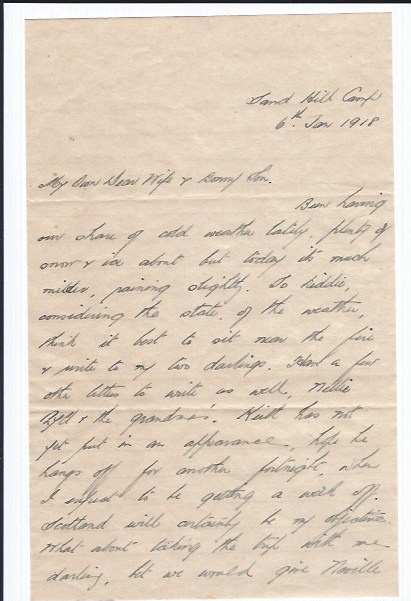 Sand Hill Camp
6th Jan 1918
My Own Dear Wife & Bonny Son.
Been having
our share of cold weather lately, plenty of
snow & ice about but today it's much
milder, raining slightly. So kiddie,
considering the state of the weather,
think it best to sit near the fire
& write to my two darlings. Have a few
other letters to write as well, Nellie
& the grandma's. Keith has not
yet put in an appearance, hope he
hangs off for another fortnight, when
I expect to be getting a week off.
Scotland will certainly be my objective.
What about taking the trip with me
darling, bet we would give Neville